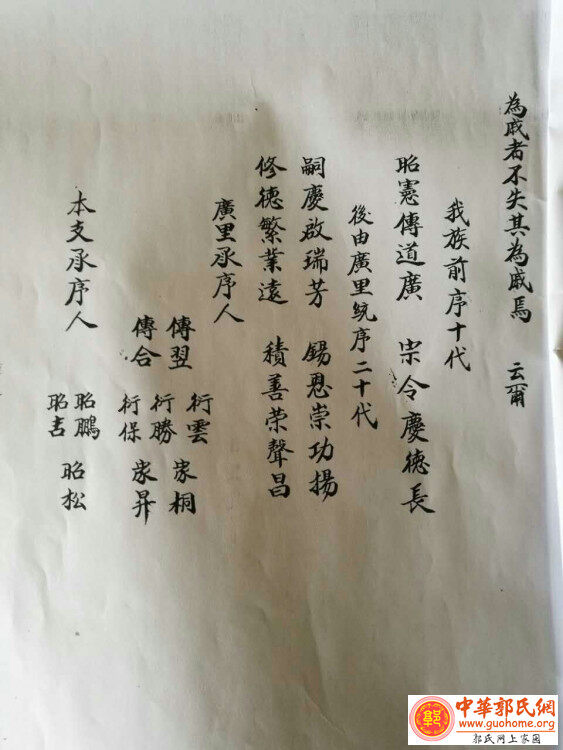 為戚者不失其為戚焉 云爾
我族前序十代
昭憲傳道廣 宗令慶德長
後由廣里統序二十代
嗣慶啟瑞芳 錫恩崇功揚
修德繁業遠 積善荣聲昌
廣里承序人
傳翌 衍雲 家桐
傳合 衍勝 家昇
衍保
本支承序人
昭鵬 昭松
昭吉
中華郭氏網
www.guohome.org
郭氏网上家園